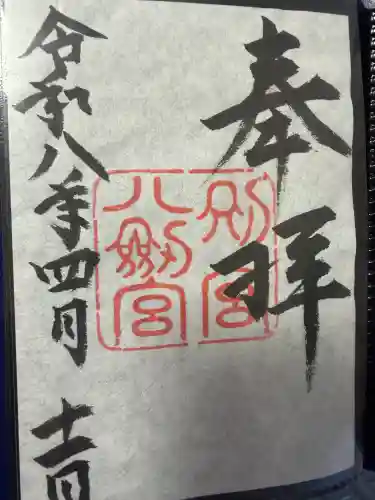 奉拝
別宮
八剱宮
令和八年四月十一日